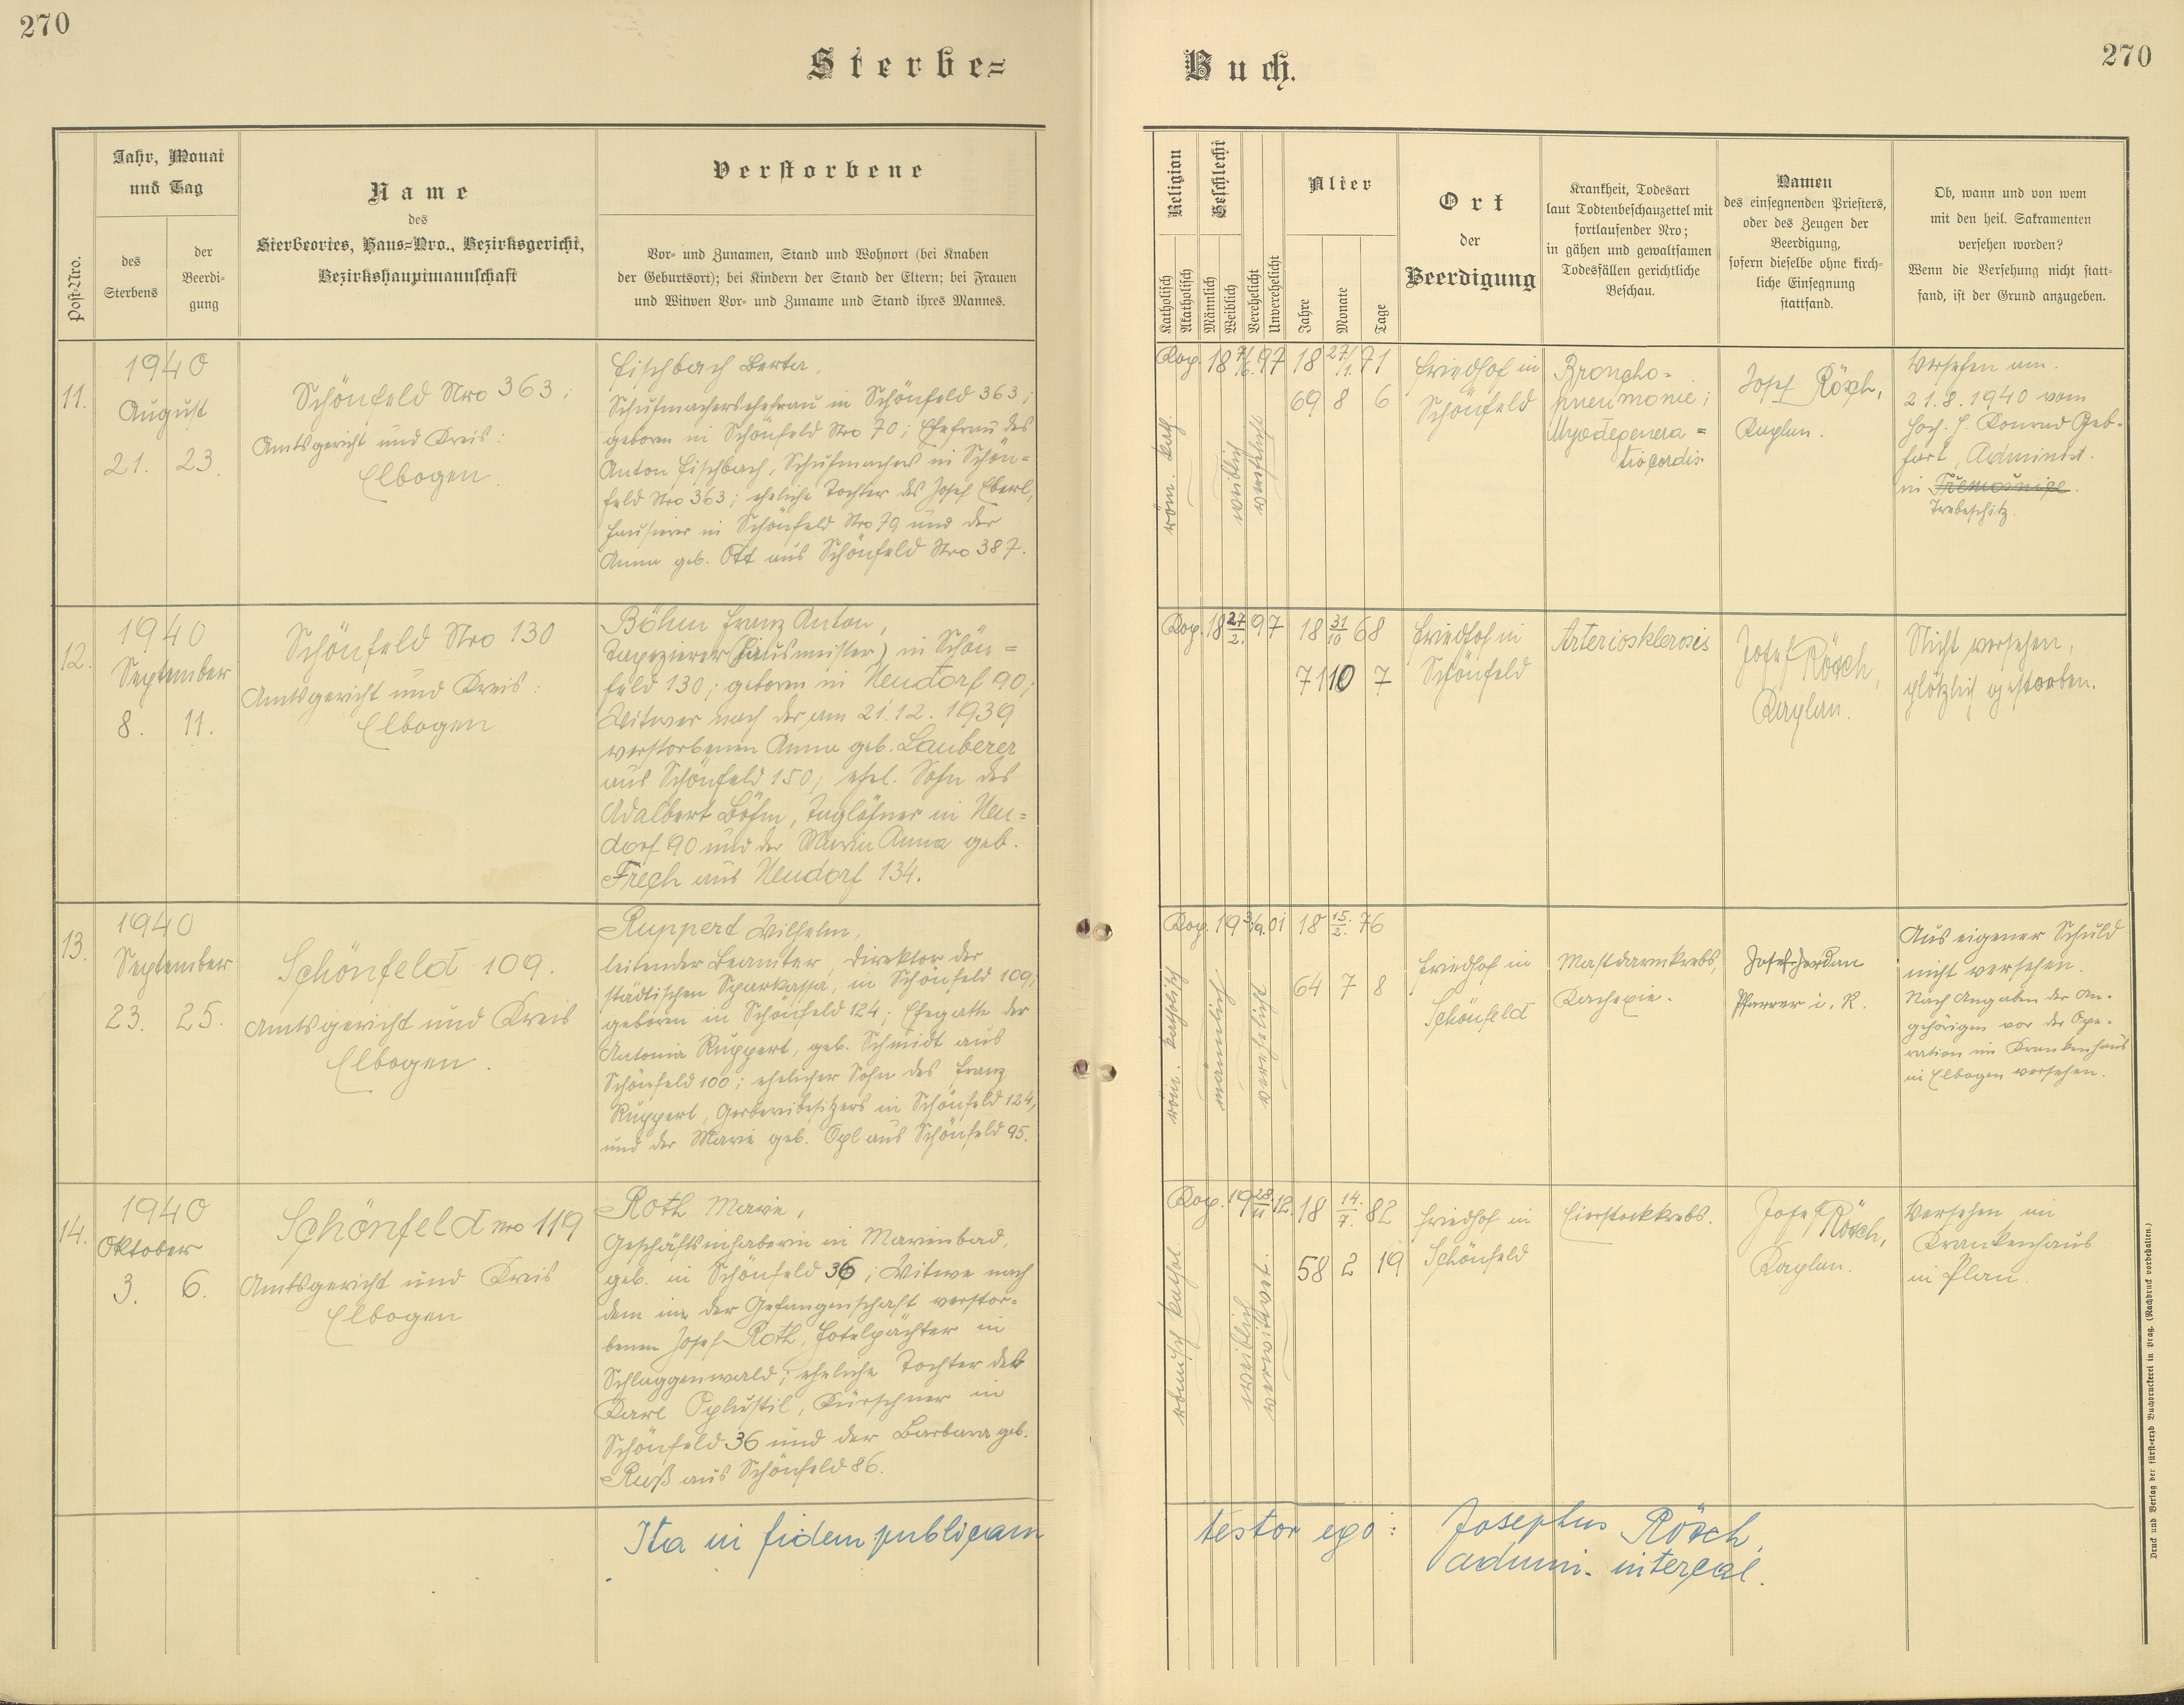 270
Sterbe=
Jahr, Monat
und Tag
Post-Nro.
des
Sterbens
der
Beerdi-
gung
Name
des
Sterbeortes, Haus=Nro., Bezirksgericht,
Bezirkshauptmannschaft
Verstorbene
Vor- und Zunamen, Stand und Wohnort (bei Knaben
der Geburtsort); bei Kindern der Stand der Eltern; bei Frauen
und Witwen Vor- und Zuname und Stand ihres Mannes.
11.
1940
August
21. 23.
Schönfeld Nro 363;
Amtsgericht und Kreis:
Elbogen.
Fischbach Berta,
Schuhmachersehefrau in Schönfeld 363;
geboren in Schönfeld Nro 70; Ehefrau des
Anton Fischbach, Schuhmachers in Schön=
feld Nro 363; eheliche Tochter des Josef Eberl,
Hausierer in Schönfeld Nro 79 und der
Anna geb. Ott aus Schönfeld Nro 387.
12.
1940
September
8. 11.
Schönfeld Nro 130
Amtsgericht und Kreis:
Elbogen
Böhm Franz Anton,
Tapezierer (Hausmeister) in Schön=
feld 130; geboren in Neudorf 90;
Witwer nach der am 21.12.1939
verstorbenen Anna geb. Lauberer
aus Schönfeld 150; ehel. Sohn des
Adalbert Böhm, Taglöhner in Neu=
dorf 90 und der Maria Anna geb.
Frech aus Neudorf 134.
13.
1940
September
23. 25.
Schönfeld 109.
Amtsgericht und Kreis
Elbogen.
Ruppert Wilhelm,
leitender Beamter, Direktor der
städtischen Sparkassa, in Schönfeld 109;
geboren in Schönfeld 124; Ehegatte der
Antonia Ruppert, geb. Schmidt aus
Schönfeld 100; ehelicher Sohn des Franz
Ruppert, Gerbereibesitzers in Schönfeld 124,
und der Marie geb. Opl aus Schönfeld 95.
14.
1940
Oktober
3. 6.
Schönfeld Nro 119
Amtsgericht und Kreis
Elbogen
Roth Marie,
Geschäftsinhaberin in Marienbad,
geb. in Schönfeld 36; Witwe nach
dem in der Gefangenschaft verstor=
benen Josef Roth, Hotelpächter in
Schlaggenwald; eheliche Tochter des
Karl Oplustil, Kürschner in
Schönfeld 36 und der Barbara geb.
Ruß aus Schönfeld 86.
Ita in fidem publicam
270
Buch.
Religion
Katholisch
Akatholisch
Geschlecht
Männlich
Weiblich
Verehelicht
Unverehelicht
Alter
Jahre
Monate
Tage
Ort
der
Beerdigung
Krankheit, Todesart
laut Todtenbeschauzettel mit
fortlaufender Nro;
in gähen und gewaltsamen
Todesfällen gerichtliche
Beschau.
Namen
des einsegnenden Priesters,
oder des Zeugen der
Beerdigung,
sofern dieselbe ohne kirch-
liche Einsegnung
stattfand.
Ob, wann und von wem
mit den heil. Sakramenten
versehen worden?
Wenn die Versehung nicht statt-
fand, ist der Grund anzugeben.
Kop. 18 7/6. 97 18 27/1. 71
69 8 6
röm. kath.
weiblich
verehelicht
Friedhof in
Schönfeld
Broncho-
pneumonie;
Myodegenera=
tio cordis.
Josef Rösch,
Kaplan.
Versehen am
21.8.1940 vom
Hoch. H. Konrad Geb-
hart, Administ.
in
Trebeschitz.
Kop. 18 27/2. 97 18 31/10 68
71 10 7
Friedhof in
Schönfeld
Arteriosklerosis
Josef Rösch,
Kaplan.
Nicht versehen,
plötzlich gestorben.
Kop. 19 3/9. 01 18 15./2. 76
64 7 8
röm. katholisch
männlich
verehelicht
Friedhof in
Schönfeld
Mastdarmkrebs,
Kachexie.
Josef Jordan
Pfarrer i. R.
Aus eigener Schuld
nicht versehen.
Nach Angaben der An-
gehörigen vor der Ope-
ration im Krankenhaus
in Elbogen versehen.
Kop. 19 28/11 12. 18 14./7. 82
58 2 19
römisch kathol.
weiblich
verwitwet.
Friedhof in
Schönfeld
Eierstockkrebs.
Josef Rösch,
Kaplan.
Versehen im
Krankenhaus
in Plan.
testor ego: Josephus Rösch,
admin. intercal.
Druck und Verlag der fürst=erzb Buchdruckerei in Prag. (Nachdruck vorbehalten.)